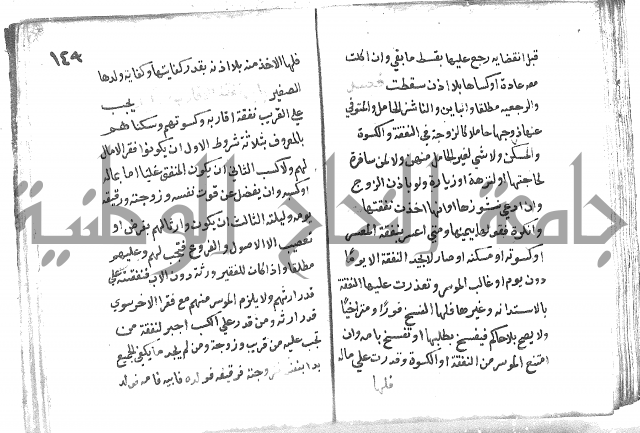 قبل انقضايه رجع عليها بقسط ما بقي وان اكلت
معه عادة او كساها بلا اذن سقطت فصل
والرجعيه مطلقا والباين والناشز الحامل والمتوفي
عنها زوجها حاملا كالزوجة في النفقة والكسوة
والمسكن ولا شي لغير الحامل منهن ولا لمن سافرة
لحاجتها او لنزهة او زيارة ولو باذن الزوج
وان ادعي نشوزها او انها اخذت نفقتها
وانكرة فقولها بيمينها ومتي اعسر بنفقة المعسر
او كسوته او مسكنه او صار لا يجد النفقة الا يوما
دون يوم او غاب الموسر وتعذرت عليها النفقة
بالاستدانه وغيرها فلها الفسخ فورا ومتراخيا
ولا يصح بلا حاكم فيفسخ بطلبها او تفسخ بامه وان
امتنع الموسر من النفقة او الكسوة وقدرت علي ماله
فلها
١٤٣
فلها الاخذ منه بلا اذنه بقدر كفايتها وكفاية ولدها
الصغير يجب
علي القريب نفقة اقاربه وكسوتهم وسكناهم
بالمعروف بثلاثة شروط الاول ان يكونوا فقرا لا مال
لهم ولا كسب الثاني ان يكون المنفق غنيا اما بماله
او كسبه وان يفضل عن قوت نفسه وزوجته ورقيقه
يومه وليلته الثالث ان يكون وارثا لهم بفرض او
تعصيب الا الاصول والفروع فتجب لهم وعليهم
مطلقا واذا كان للفقير ورثة دون الاب فنفقته علي
قدر ارثهم ولا يلزم الموسر منهم مع فقر الاخر سوي
قدر ارثه ومن قدر علي الكسب اجبر لنفقة من
تجب عليه من قريب وزوجة ومن لم يجد ما يكفي الجميع
بدا بنفسه فزوجته فرقيقه فولده فابيه فامه فولد
جامعة النجاح الوطنية